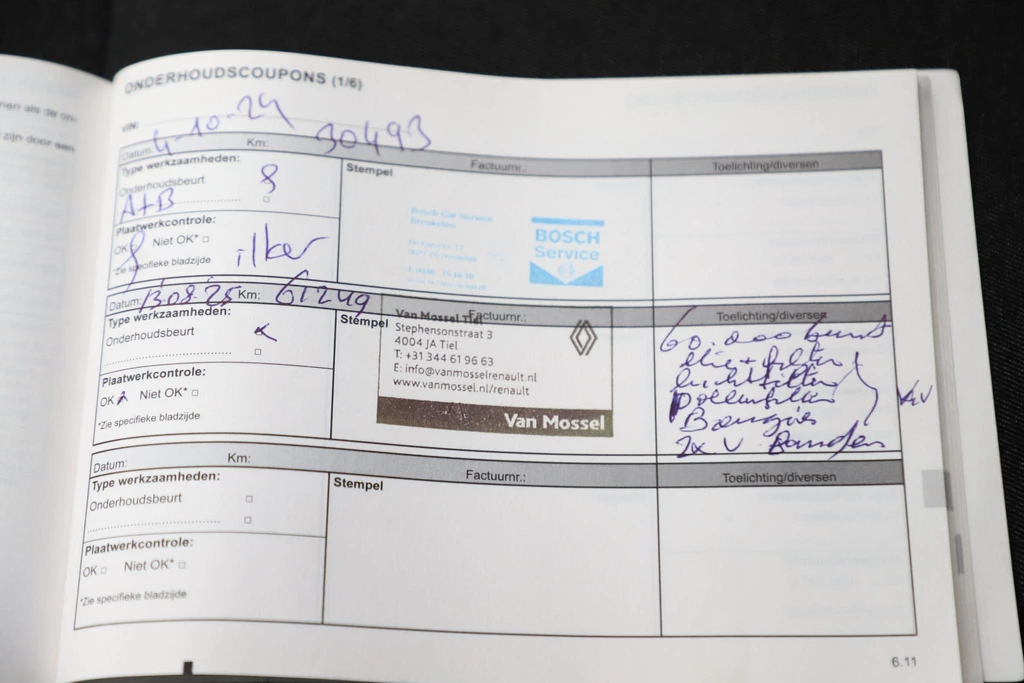 nen als de on-
zijn door een
ONDERHOUDSCOUPONS (1/6)
VIN:
Datum: 4-10-24 Km: 30493 Factuurnr.: Toelichting/diversen
Type werkzaamheden:
Stempel
Onderhoudsbeurt
A+B
Plaatwerkcontrole:
OK Niet OK* □
*Zie specifieke bladzijde
ilker
Bosch Car Service
BOSCH
Service
Datum: 13-08-25 Km: 61249 Factuurnr.: Toelichting/diversen
Type werkzaamheden:
Stempel
Onderhoudsbeurt
□
Plaatwerkcontrole:
OK Niet OK* □
*Zie specifieke bladzijde
Van Mossel Tiel
Stephensonstraat 3
4004 JA Tiel
T: +31 344 61 96 63
E: info@vanmosselrenault.nl
www.vanmossel.nl/renault
Van Mossel
60.000 beurt
olie + filter
luchtfilter
pollenfilter
Bougies
2x V Banden
Datum: Km: Factuurnr.: Toelichting/diversen
Type werkzaamheden:
Stempel
Onderhoudsbeurt □
□
Plaatwerkcontrole:
OK □ Niet OK* □
*Zie specifieke bladzijde
6.11